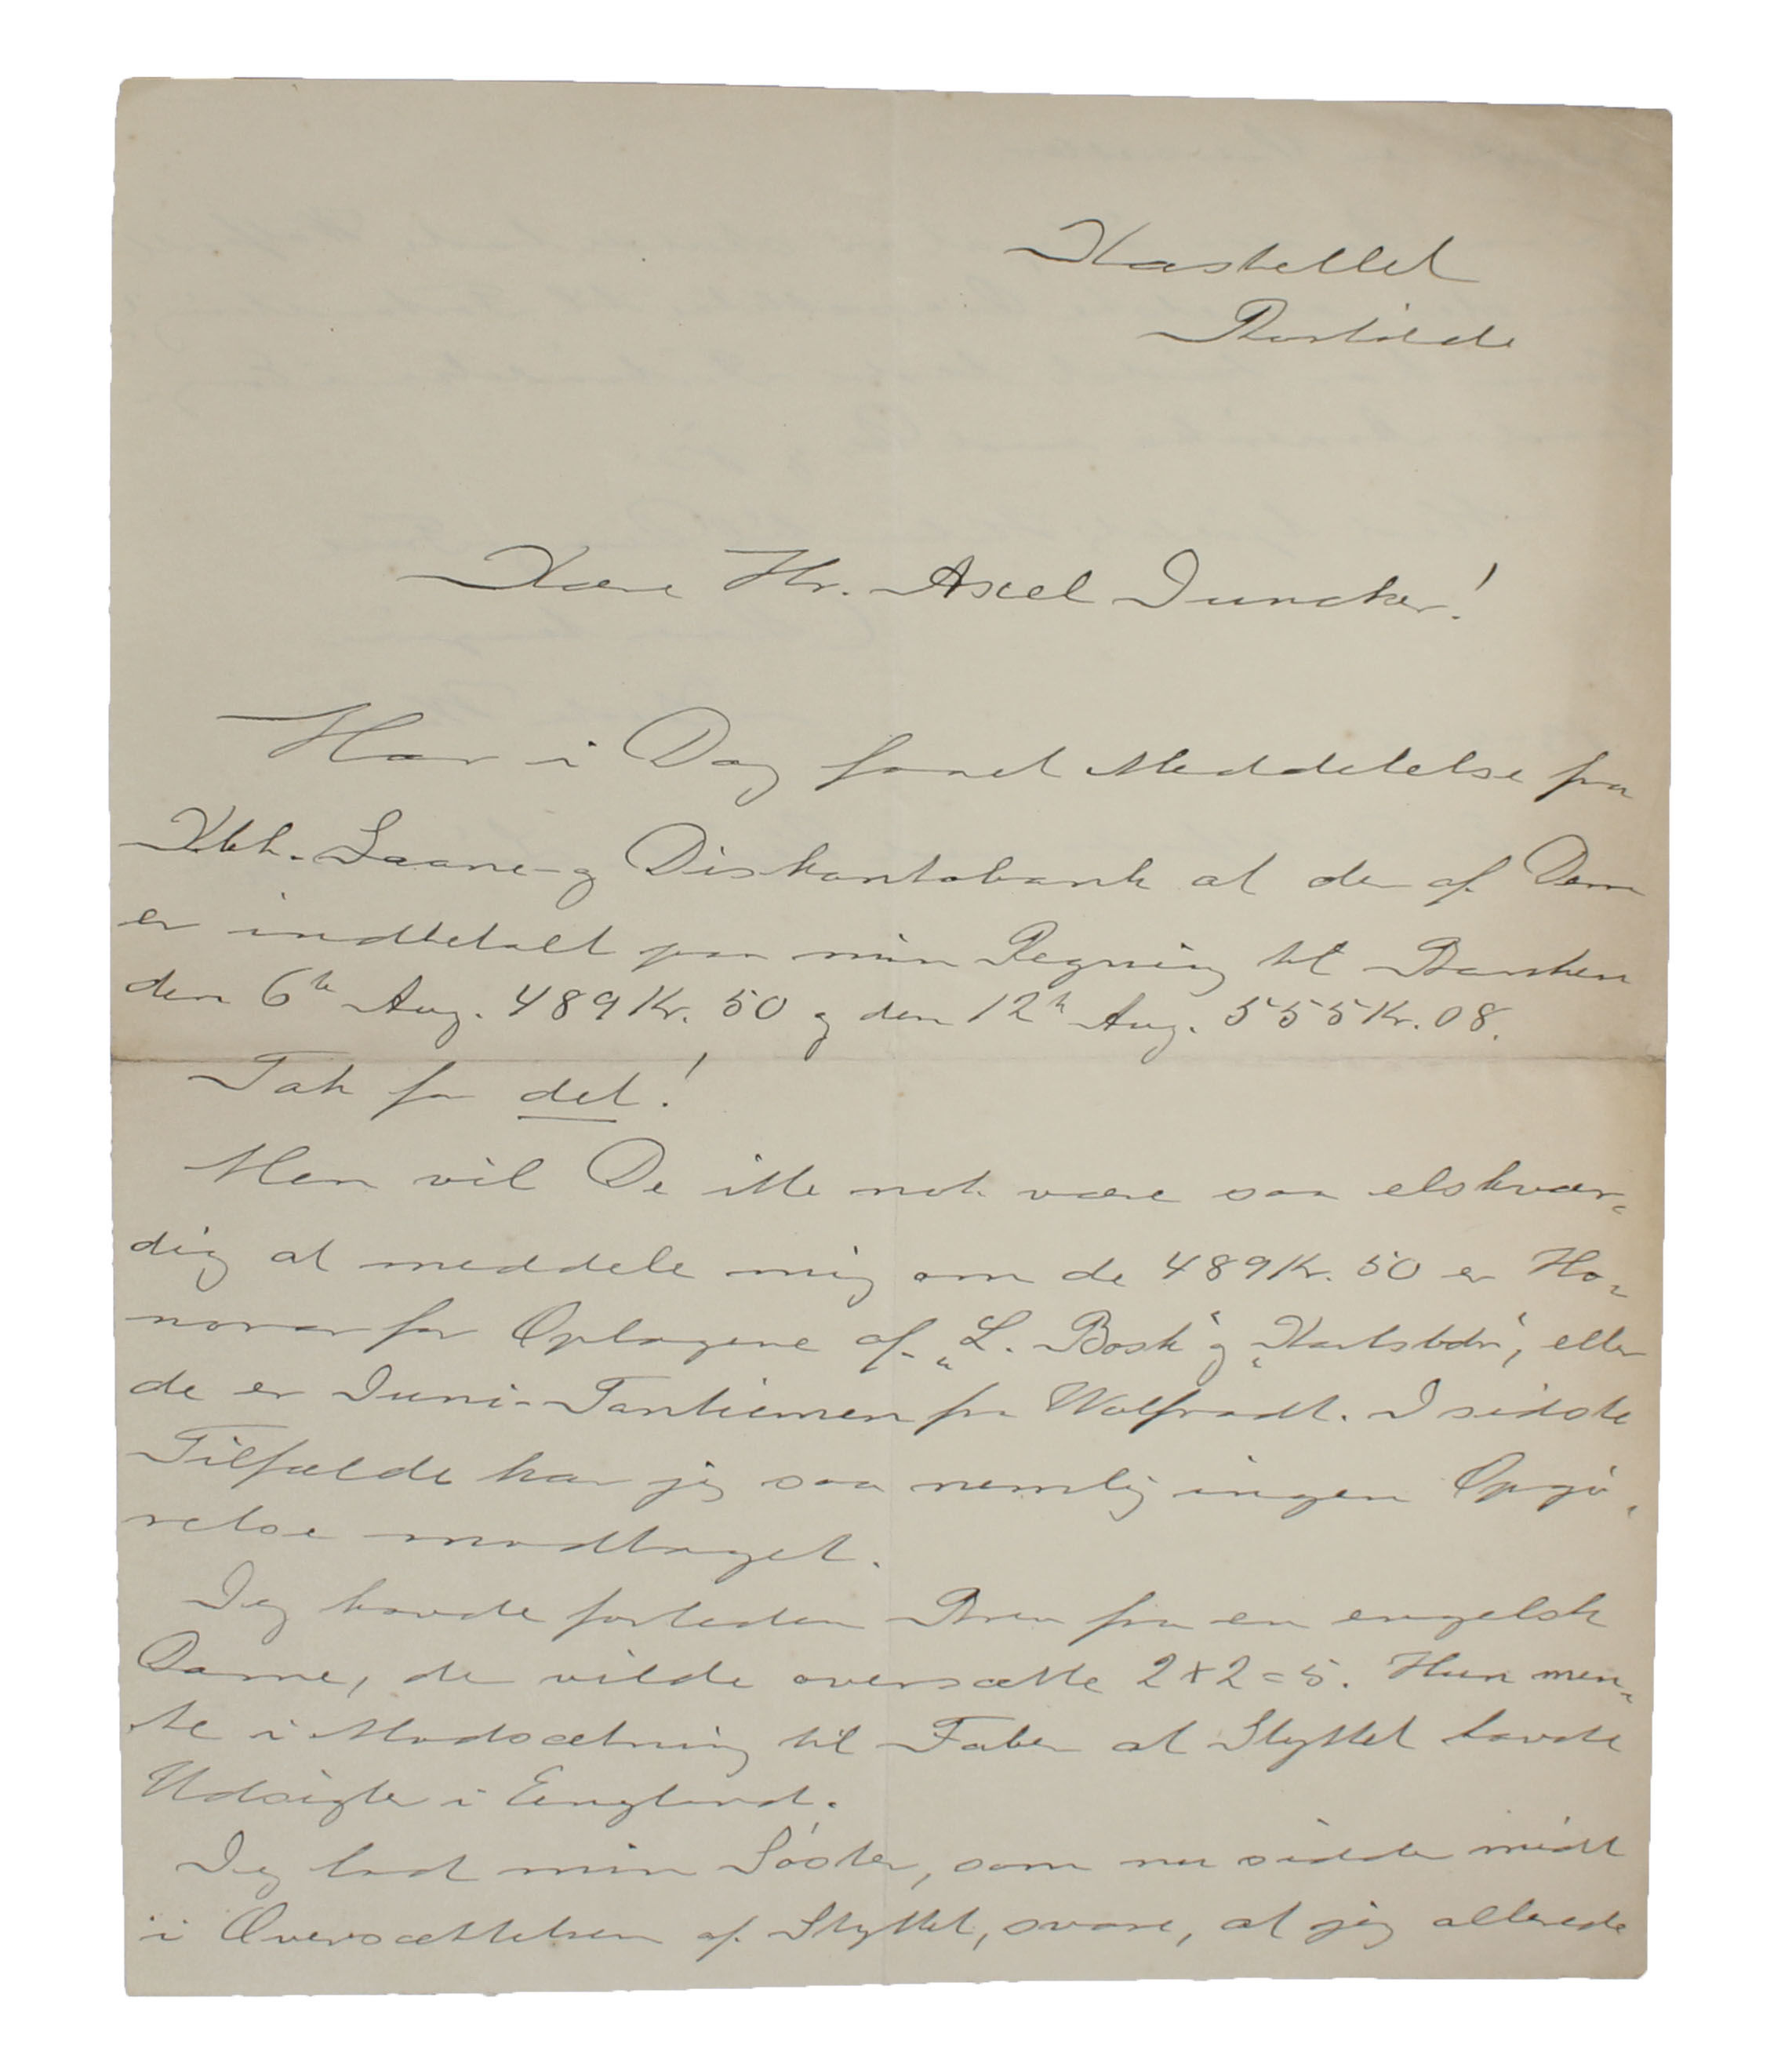 Kastellet
Roskilde
Kære Hr. Axel Juncker!
Har i Dag faaet Meddelelse fra
Kbh. Laane- og Diskontobank at der af Dem
er indbetalt paa min Regning til Banken
den 6te Aug. 489 Kr. 50 og den 12te Aug. 555 Kr. 08.
Tak for det!
Men vil De ikke nok være saa elskvær-
dig at meddele mig om de 489 Kr. 50 er Ho-
norar for Oplagene af „L. Bosk“ og „Karlsbdr“, eller
de er Juni-Tantiemen fra Wolfradt. I sidste
Tilfælde har jeg saa nemlig ingen Opgjö-
relse modtaget.
Jeg havde forleden Brev fra en engelsk
Dame, der vilde oversætte 2x2=5. Hun men-
te i Modsætning til Faber at Stykket havde
Udsigter i England.
Jeg lod min Söster, som nu sidder midt
i Oversættelsen af Stykket, svare, at jeg allerede